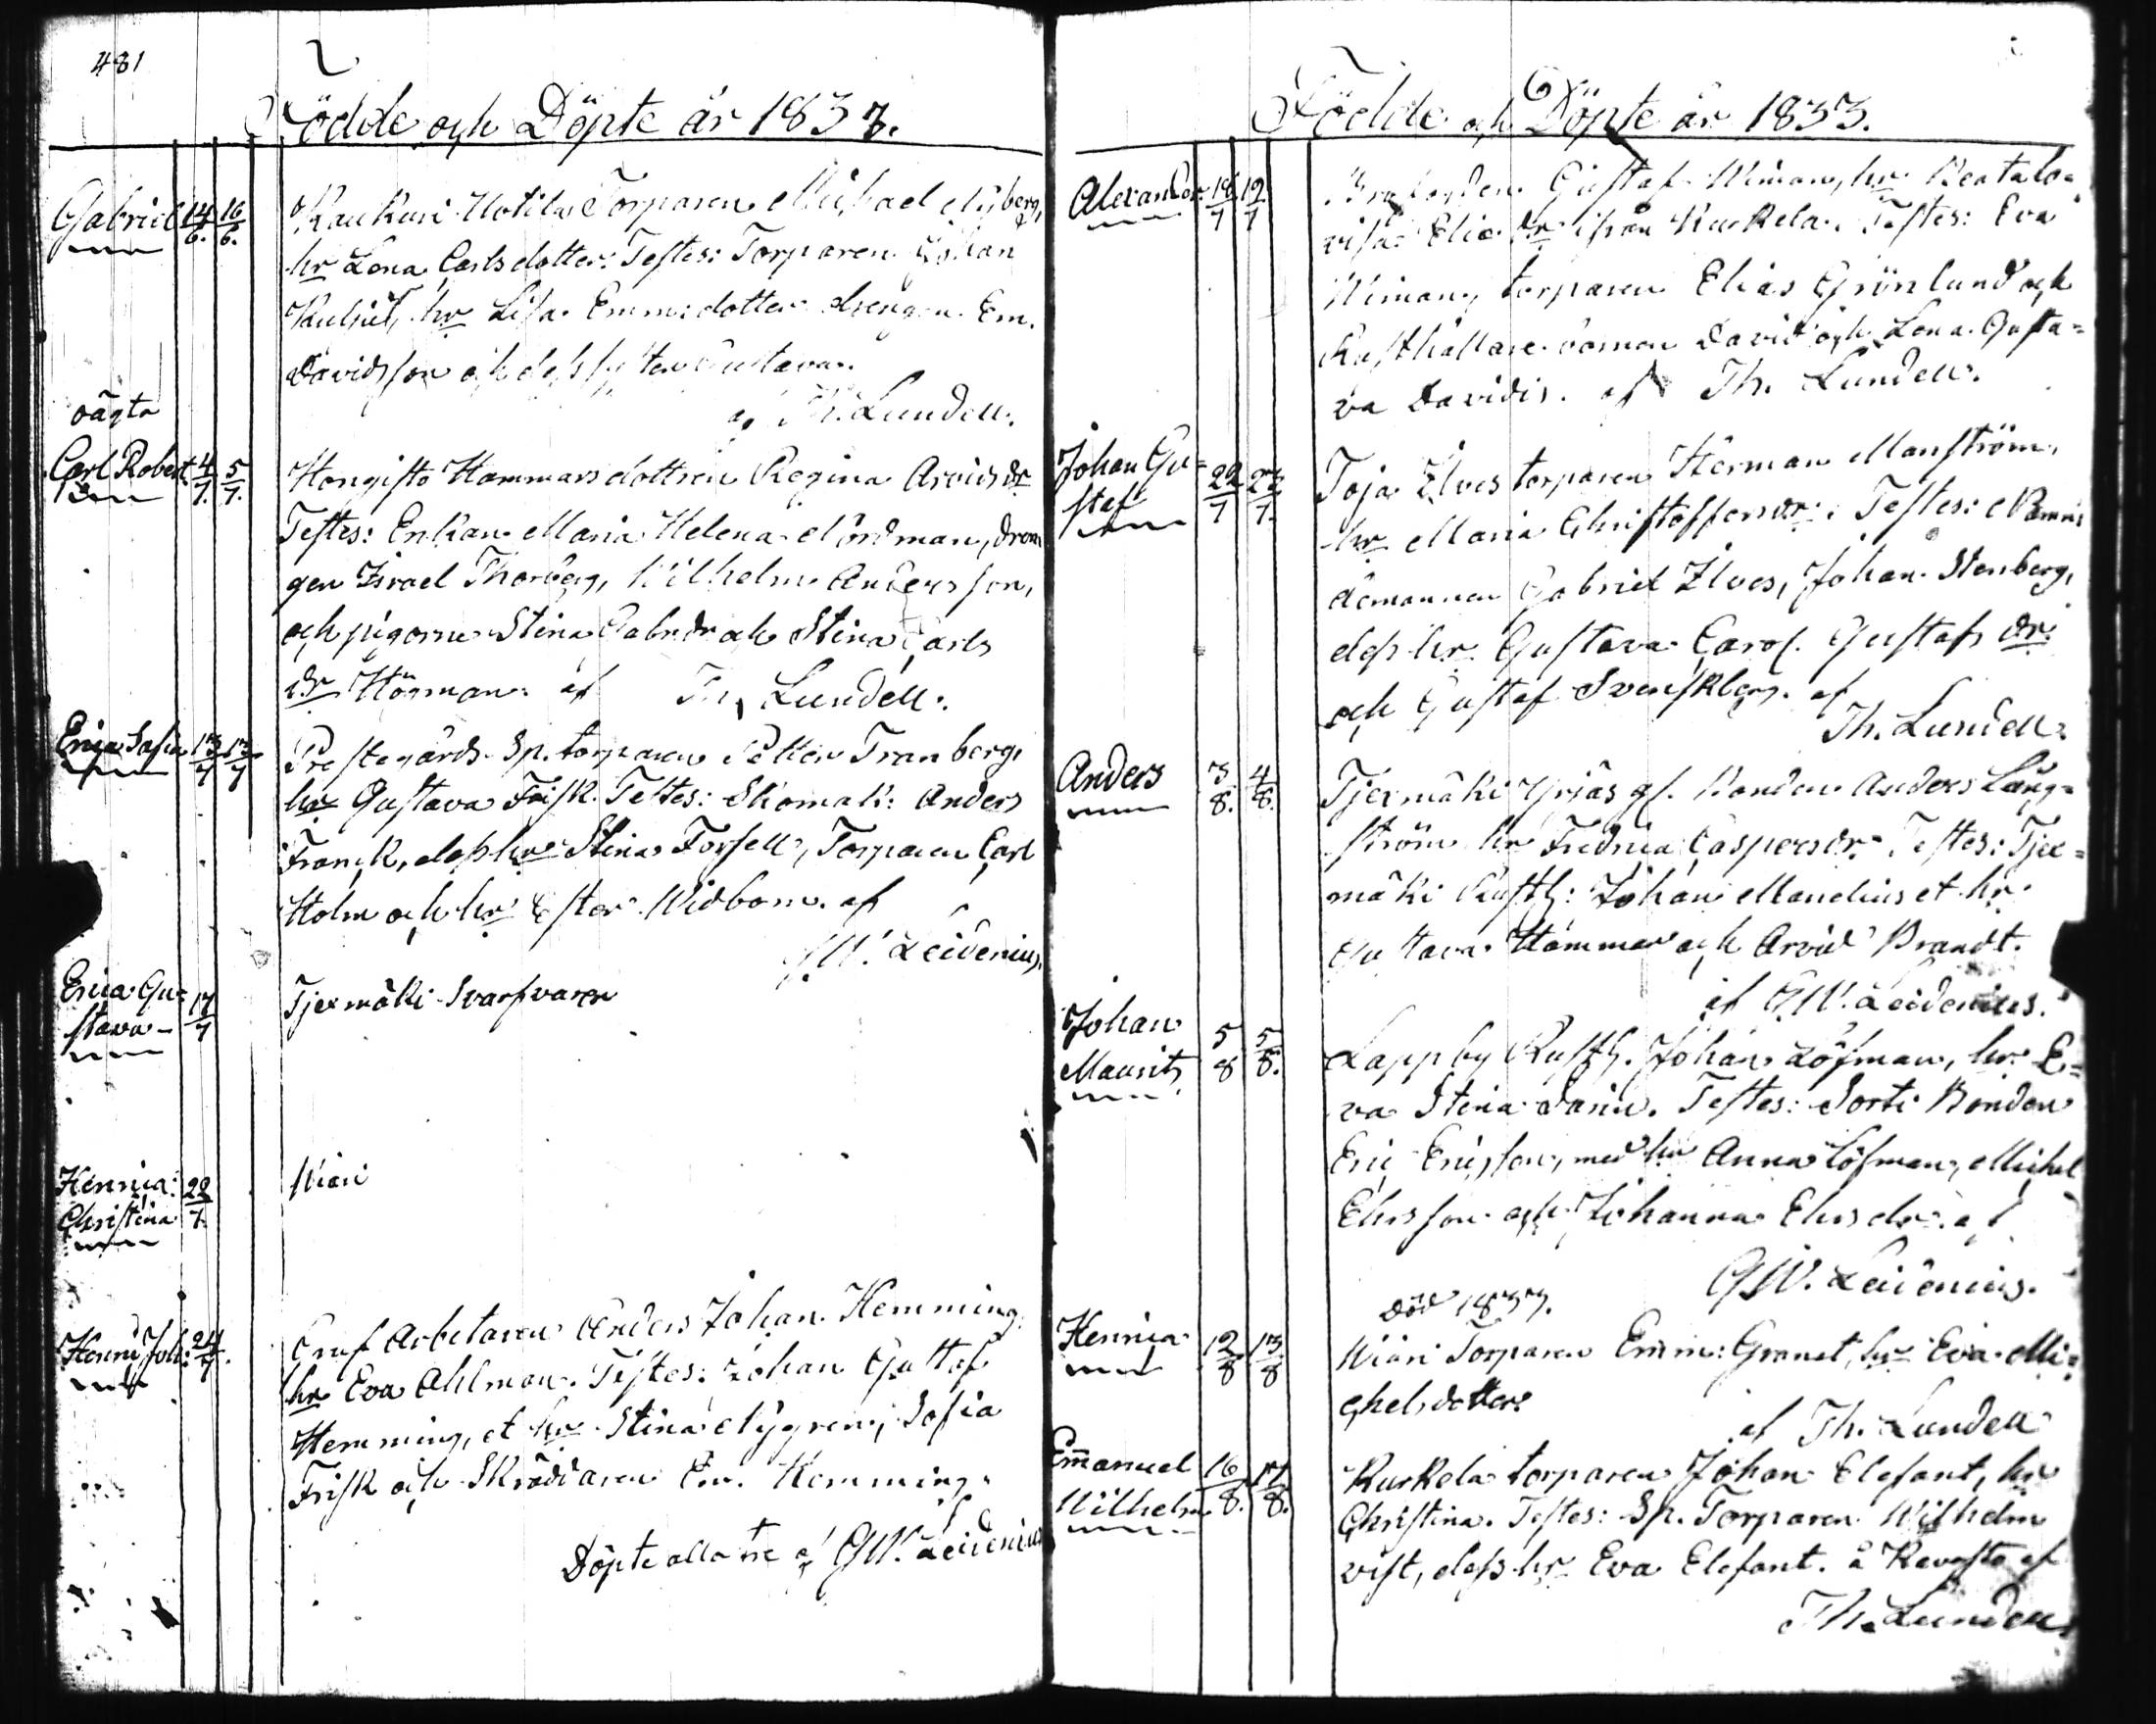 481
Födde och Döpte år 1833.
Gabriel 14/6. 16/6.
Torparen Michael Nyberg,
hr Lena Carlsdotter. Testes: Torparen Johan
hr Lisa Em:dotter drengen Em.
Davidsson och dess syster Gustava.
af Th. Lundell.
oägta
Carl Robert 4/7. 5/7.
Hongisto Hammars dottren Regina Arvidsdr
Testes: Enkan Maria Helena Nordman, dren
gen Israel Thorberg, Wilhelm Andersson,
och pigorna Stina Gabrdr och Stina Carls
dr Högman. af Th. Lundell.
Erica Sofia 13/7 13/7
Prestegårds Sp. torparen Petter Tranberg,
hr Gustava Frisk. Testes: Skomak: Anders
Franck, dess hr Stina Forsell, Torparen Carl
Holm och hr Ester Widbom. af
G.W. Leidenius.
Erica Gu=
stava 17/7
Tjermäki Svarfvaren
Henrica
Christina 22/7.
Wiari
Henric Joh: 24/7.
Arbetaren Anders Johan Hemming,
hr Eva Ahlman. Testes: Johan Gustaf
Hemming, et hr Stina Nygren, Sofia
Frisk och Skräddaren Em. Hemming.
Döpte alla tre af G.W. Leidenius
Födde och Döpte år 1833.
Alexander 18/7 19/7
Gustaf Wiman, hr Beata Lo=
visa Elie dr ifrån Kurkela. Testes: Eva
Wiman, torparen Elias Grönlund och
Rusthållare sonen David och Lena Gusta=
va Davidis. af Th. Lundell.
Johan Gu=
staf 22/7 23/7.
Toja Ilves torparen Herman Manström,
hr Maria Christoffersdr. Testes: Nämn=
demannen Gabriel Ilves, Johan Stenberg,
dess hr Gustava Carol. Gustafs dr.
och Gustaf Svenskberg. af
Th. Lundell.
Anders 3/8. 4/8.
Tjermäki Yrjäs gl. Bonden Anders Lång=
ström hr Fredrica Caspersdr. Testes: Tjer=
mäki Rusth: Johan Mandelius et hr
Gustava Hammar och Arvid Brandt.
af G.W. Leidenius.
Johan
Maurits 5/8 5/8.
Lappby Rusth. Johan Löfman, hr E=
va Stina Testes: Sorti Bonden
Eric Ericsson, med hr Anna Löfman, Michel
Elisson och Johanna Elisdr. af
G.W. Leidenius.
Död 1833.
Henrica 12/8 13/8
Wiari Torparen Emm: Granat, hr Eva Mi=
chelsdotter
af Th. Lundell
Emanuel
Wilhelm 16/8. 17/8.
Kurkela torparen Johan Elefant, hr
Christina. Testes: Sp. Torparen Wilhelm
vist, dess hr Eva Elefant. å af
Th. Lundell